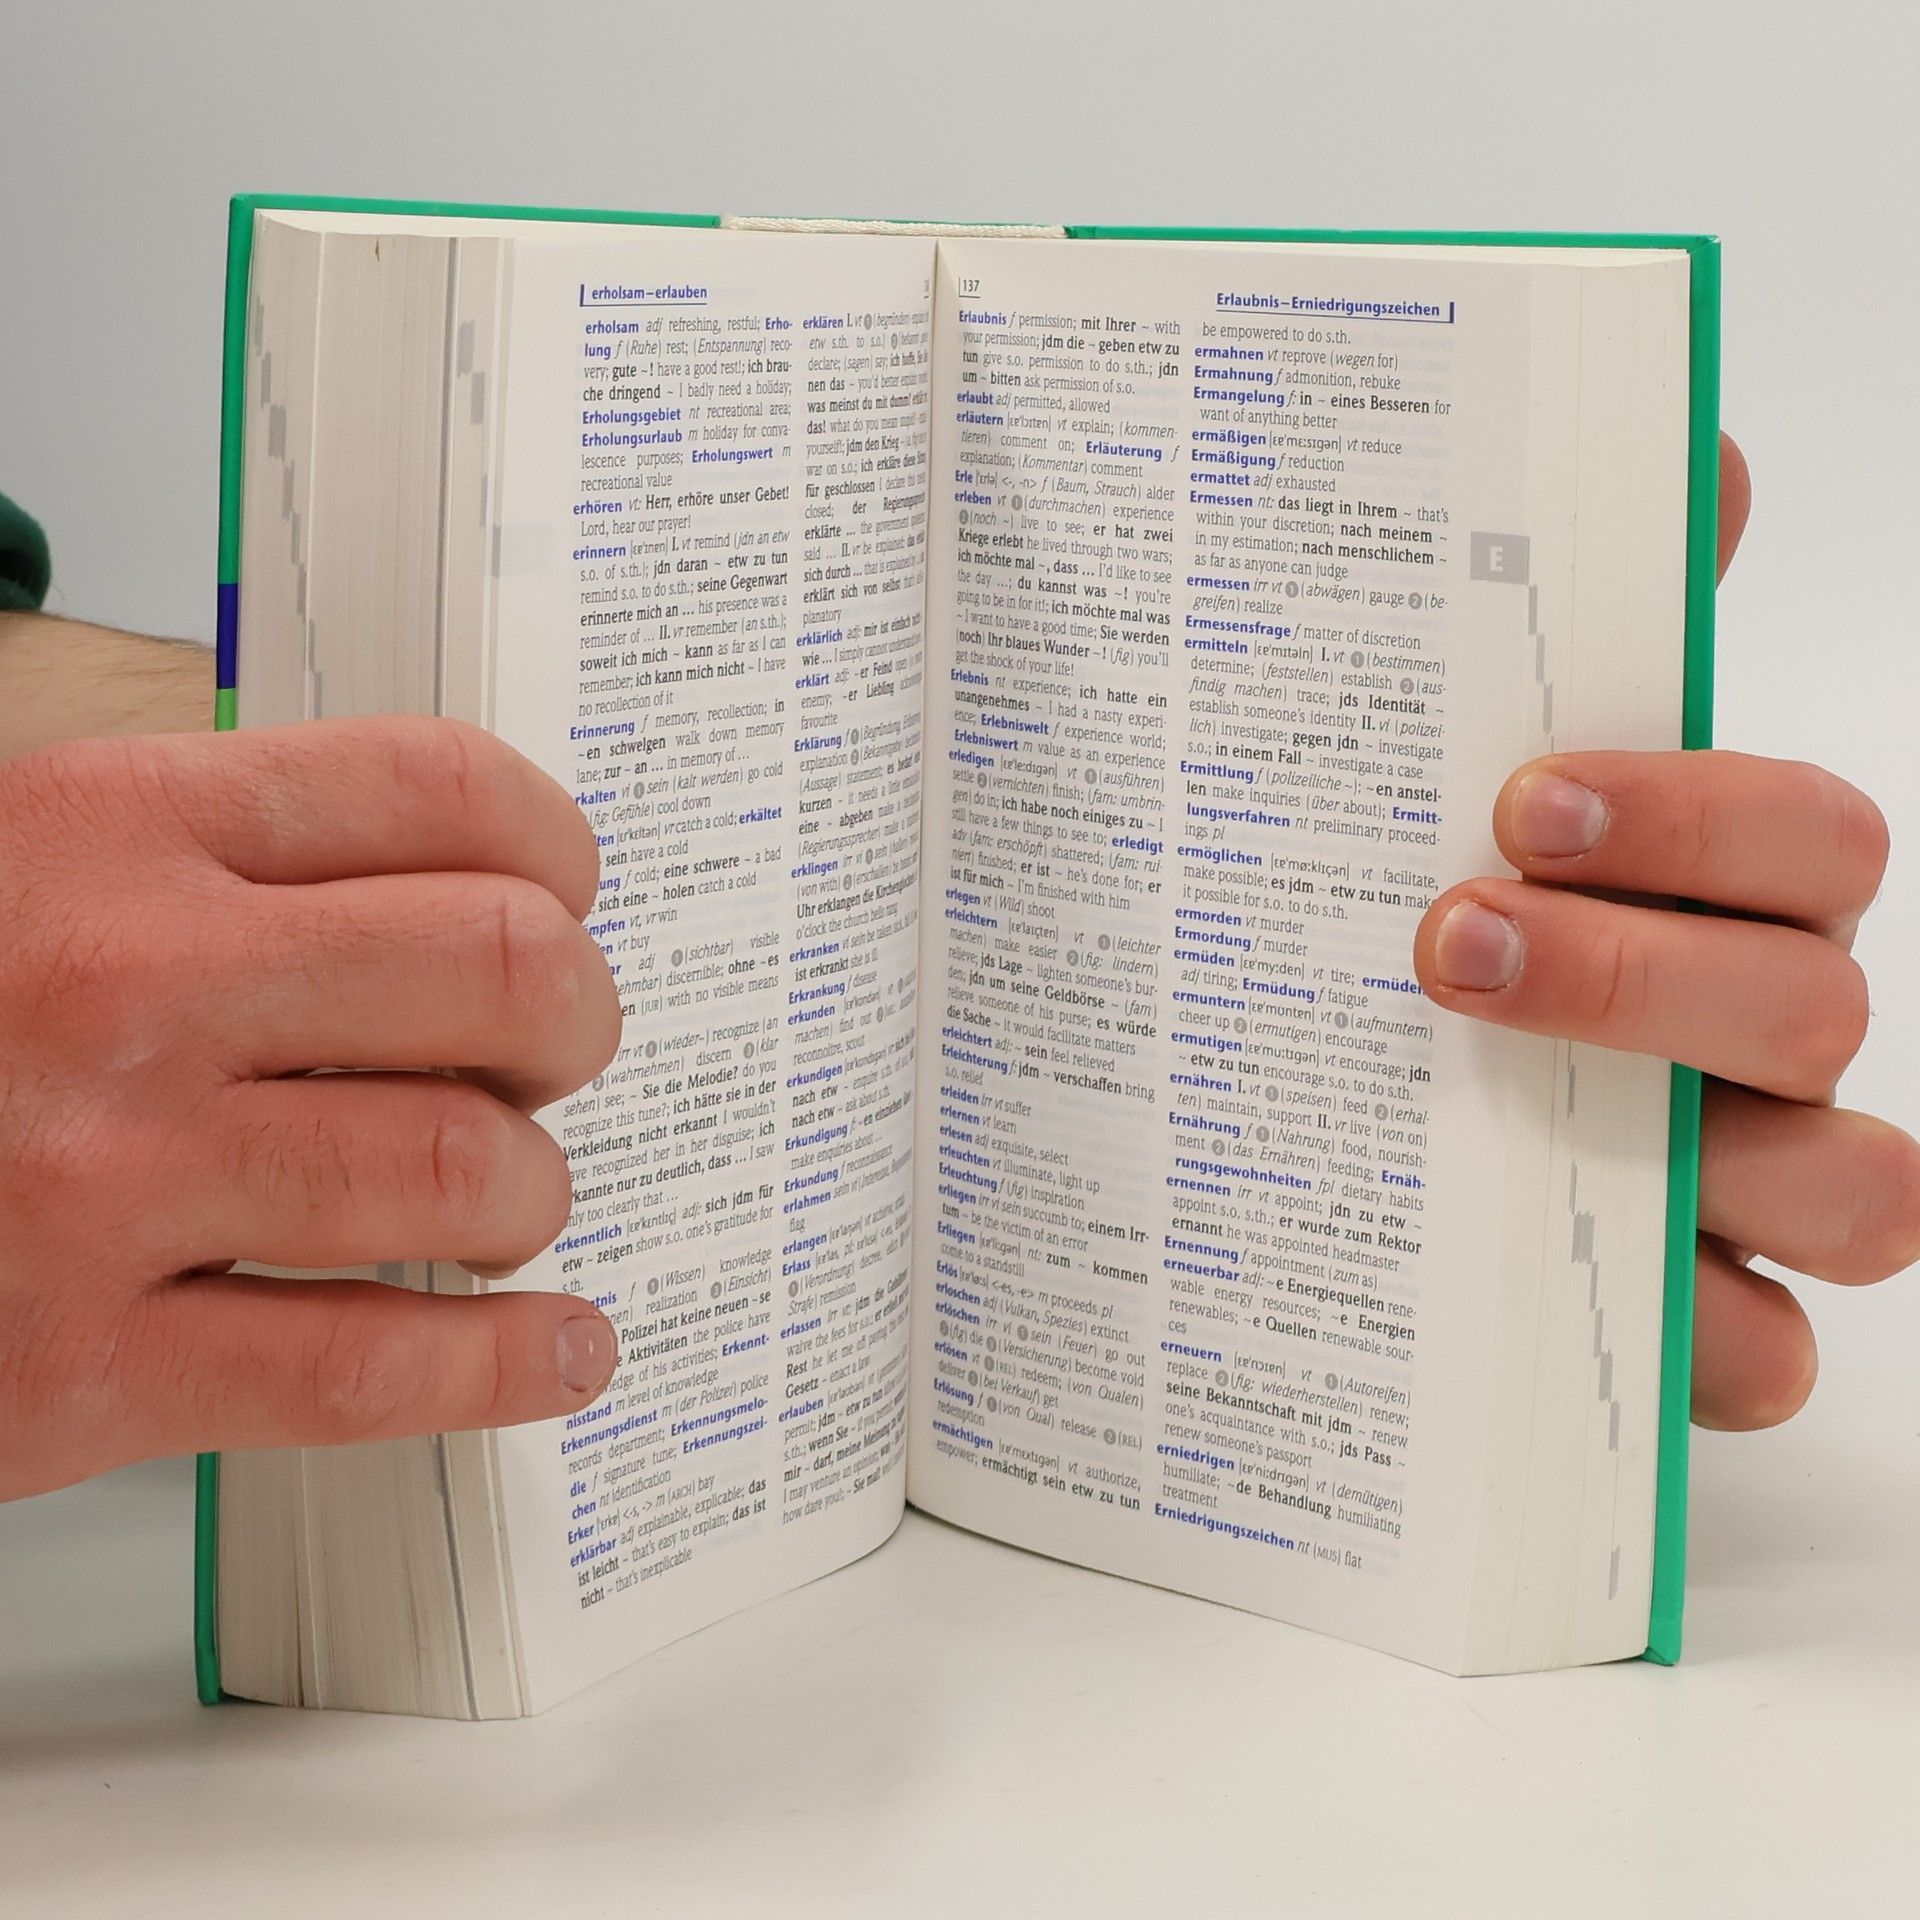 erholsam–erlauben
erholsam adj refreshing, restful; Erho-
lung f (Ruhe) rest; (Entspannung) reco-
very; gute ~! have a good rest!; ich brau-
che dringend ~ I badly need a holiday;
Erholungsgebiet nt recreational area;
Erholungsurlaub m holiday for conva-
lescence purposes; Erholungswert m
recreational value
erhören vt: Herr, erhöre unser Gebet!
Lord, hear our prayer!
erinnern [ɛɐ'ɪnɐn] I. vt remind (jdn an etw
s.o. of s.th.); jdn daran ~ etw zu tun
remind s.o. to do s.th.; seine Gegenwart
erinnerte mich an ... his presence was a
reminder of ... II. vr remember (an s.th.);
soweit ich mich ~ kann as far as I can
remember; ich kann mich nicht ~ I have
no recollection of it
Erinnerung f memory, recollection; in
~en schwelgen walk down memory
lane; zur ~ an ... in memory of ...
rkalten vi ❶ sein (kalt werden) go cold
(fig: Gefühle) cool down
ten [ɛɐ'kɛltən] vr catch a cold; erkältet
sein have a cold
ung f cold; eine schwere ~ a bad
sich eine ~ holen catch a cold
mpfen vt, vr win
en vt buy
ar adj ❶ (sichtbar) visible
ehmbar) discernible; ohne ~es
en (JUR) with no visible means
irr vt ❶ (wieder~) recognize (an
❷ (wahrnehmen) discern ❸ (klar
sehen) see; ~ Sie die Melodie? do you
recognize this tune?; ich hätte sie in der
Verkleidung nicht erkannt I wouldn't
ave recognized her in her disguise; ich
kannte nur zu deutlich, dass ... I saw
nly too clearly that ...
erkenntlich [ɛɐ'kɛntlɪç] adj: sich jdm für
etw ~ zeigen show s.o. one's gratitude for
s.th.
tnis f ❶ (Wissen) knowledge
nen) realization ❸ (Einsicht)
Polizei hat keine neuen ~se
e Aktivitäten the police have
ledge of his activities; Erkennt-
nisstand m level of knowledge
Erkennungsdienst m (der Polizei) police
records department; Erkennungsmelo-
die f signature tune; Erkennungszei-
chen nt identification
Erker ['ɛrkɐ] <-s, -> m (ARCH) bay
erklärbar adj explainable, explicable; das
ist leicht ~ that's easy to explain; das ist
nicht ~ that's inexplicable
erklären I. vt ❶ (begründen)
etw s.th. to s.o.)
declare; (sagen) say; ich hoffe, Sie
nen das ~ you'd better explain
was meinst du mit dumm?
das! what do you mean
yourself!; jdm den Krieg ~
war on s.o.; ich erkläre diese
für geschlossen I declare this
closed; der Regierungs
erklärte ... the government
said ... II. vr be explained;
sich durch ... that is explained
erklärt sich von selbst
planatory
erklärlich adj: mir ist einfach
wie ... I simply cannot understand
erklärt adj: ~er Feind open
enemy; ~er Liebling
favourite
Erklärung f ❶ (Begründung,
explanation ❷ (Bekanntgabe)
(Aussage) statement;
kurzen ~ it needs a little
eine ~ abgeben make a
(Regierungssprecher) make
erklingen irr vi ❶ sein
(von with) ❷ (erschallen)
Uhr erklangen die Kirchenglocken
o'clock the church bells rang
erkranken vi sein be taken sick,
ist erkrankt she is ill
Erkrankung f disease
erkunden
machen) find out
reconnoitre, scout
erkundigen
nach etw ~ enquire
nach etw ~ ask about s.th.
Erkundigung f: ~en einziehen
make enquiries about ...
Erkundung f reconnaissance
erlahmen sein vi
flag
erlangen vt achieve,
Erlass
❶ (Verordnung) decree,
Strafe) remission
erlassen irr vt: jdm die Gebühren
waive the fees for s.o.;
Rest he let me off paying the
Gesetz ~ enact a law
erlauben
permit; jdm ~ etw zu tun
s.th.; wenn Sie ~ if you
mir ~ darf, meine Meinung
I may venture an opinion;
how dare you!; ~ Sie mal!
137
Erlaubnis–Erniedrigungszeichen
Erlaubnis f permission; mit Ihrer ~ with
your permission; jdm die ~ geben etw zu
tun give s.o. permission to do s.th.; jdn
um ~ bitten ask permission of s.o.
erlaubt adj permitted, allowed
erläutern [ɛɐ'lɔɪtɐn] vt explain; (kommen-
tieren) comment on; Erläuterung f
explanation; (Kommentar) comment
Erle ['ɛrlə] <-, -n> f (Baum, Strauch) alder
erleben vt ❶ (durchmachen) experience
❷ (noch ~) live to see; er hat zwei
Kriege erlebt he lived through two wars;
ich möchte mal ~, dass ... I'd like to see
the day ...; du kannst was ~! you're
going to be in for it!; ich möchte mal was
~ I want to have a good time; Sie werden
(noch) Ihr blaues Wunder ~! (fig) you'll
get the shock of your life!
Erlebnis nt experience; ich hatte ein
unangenehmes ~ I had a nasty experi-
ence; Erlebniswelt f experience world;
Erlebniswert m value as an experience
erledigen [ɛɐ'le:dɪgən] vt ❶ (ausführen)
settle ❷ (vernichten) finish; (fam: umbrin-
gen) do in; ich habe noch einiges zu ~ I
still have a few things to see to; erledigt
adv (fam: erschöpft) shattered; (fam: rui-
niert) finished; er ist ~ he's done for; er
ist für mich ~ I'm finished with him
erlegen vt (Wild) shoot
erleichtern [ɛɐ'laɪçtɐn] vt ❶ (leichter
machen) make easier ❷ (fig: lindern)
relieve; jds Lage ~ lighten someone's bur-
den; jdn um seine Geldbörse ~ (fam)
relieve someone of his purse; es würde
die Sache ~ it would facilitate matters
erleichtert adj: ~ sein feel relieved
Erleichterung f: jdm ~ verschaffen bring
s.o. relief
erleiden irr vt suffer
erlernen vt learn
erlesen adj exquisite, select
erleuchten vt illuminate, light up
Erleuchtung f (fig) inspiration
erliegen irr vi sein succumb to; einem Irr-
tum ~ be the victim of an error
Erliegen [ɛɐ'li:gən] nt: zum ~ kommen
come to a standstill
Erlös [ɛɐ'lø:s] <-es, -e> m proceeds pl
erloschen adj (Vulkan, Spezies) extinct
erlöschen irr vi ❶ sein (Feuer) go out
❷ (fig) die ❸ (Versicherung) become void
erlösen vt ❶ (REL) redeem; (von Qualen)
deliver ❷ (bei Verkauf) get
Erlösung f ❶ (von Qual) release ❷ (REL)
redemption
ermächtigen [ɛɐ'mɛxtɪgən] vt authorize,
empower; ermächtigt sein etw zu tun
be empowered to do s.th.
ermahnen vt reprove (wegen for)
Ermahnung f admonition, rebuke
Ermangelung f: in ~ eines Besseren for
want of anything better
ermäßigen [ɛɐ'mɛ:sɪgən] vt reduce
Ermäßigung f reduction
ermattet adj exhausted
Ermessen nt: das liegt in Ihrem ~ that's
within your discretion; nach meinem ~
in my estimation; nach menschlichem ~
as far as anyone can judge
ermessen irr vt ❶ (abwägen) gauge ❷ (be-
greifen) realize
Ermessensfrage f matter of discretion
ermitteln [ɛɐ'mɪtəln] I. vt ❶ (bestimmen)
determine; (feststellen) establish ❷ (aus-
findig machen) trace; jds Identität ~
establish someone's identity II. vi (polizei-
lich) investigate; gegen jdn ~ investigate
s.o.; in einem Fall ~ investigate a case
Ermittlung f (polizeiliche ~): ~en anstel-
len make inquiries (über about); Ermitt-
lungsverfahren nt preliminary proceed-
ings pl
ermöglichen [ɛɐ'mø:klɪçən] vt facilitate,
make possible; es jdm ~ etw zu tun make
it possible for s.o. to do s.th.
ermorden vt murder
Ermordung f murder
ermüden [ɛɐ'my:dən] vt tire; ermüden
adj tiring; Ermüdung f fatigue
ermuntern [ɛɐ'mʊntɐn] vt ❶ (aufmuntern)
cheer up ❷ (ermutigen) encourage
ermutigen [ɛɐ'mu:tɪgən] vt encourage; jdn
~ etw zu tun encourage s.o. to do s.th.
ernähren I. vt ❶ (speisen) feed ❷ (erhal-
ten) maintain, support II. vr live (von on)
Ernährung f ❶ (Nahrung) food, nourish-
ment ❷ (das Ernähren) feeding; Ernäh-
rungsgewohnheiten fpl dietary habits
ernennen irr vt appoint; jdn zu etw ~
appoint s.o. s.th.; er wurde zum Rektor
ernannt he was appointed headmaster
Ernennung f appointment (zum as)
erneuerbar adj: ~e Energiequellen rene-
wable energy resources; ~e Energien
renewables; ~e Quellen renewable sour-
ces
erneuern [ɛɐ'nɔɪɐn] vt ❶ (Autoreifen)
replace ❷ (fig: wiederherstellen) renew;
seine Bekanntschaft mit jdm ~ renew
one's acquaintance with s.o.; jds Pass ~
renew someone's passport
erniedrigen [ɛɐ'ni:drɪgən] vt (demütigen)
humiliate; ~de Behandlung humiliating
treatment
Erniedrigungszeichen nt (MUS) flat
E